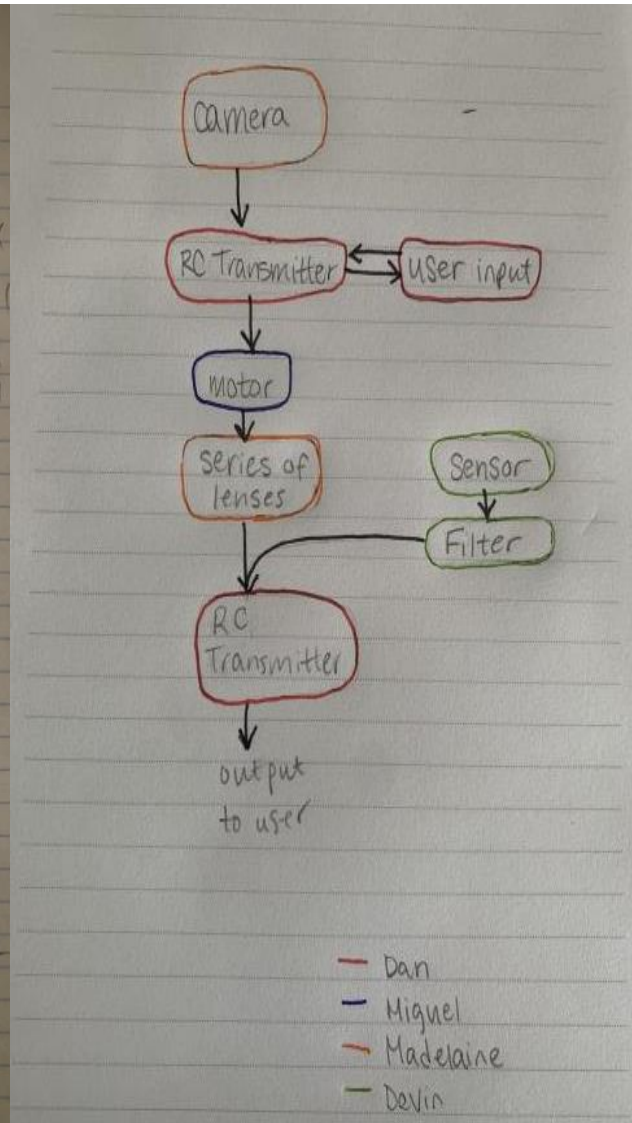 Camera
RC Transmitter
user input
motor
series of
lenses
Sensor
Filter
RC
Transmitter
output
to user
Dan
Miguel
Madelaine
Devin